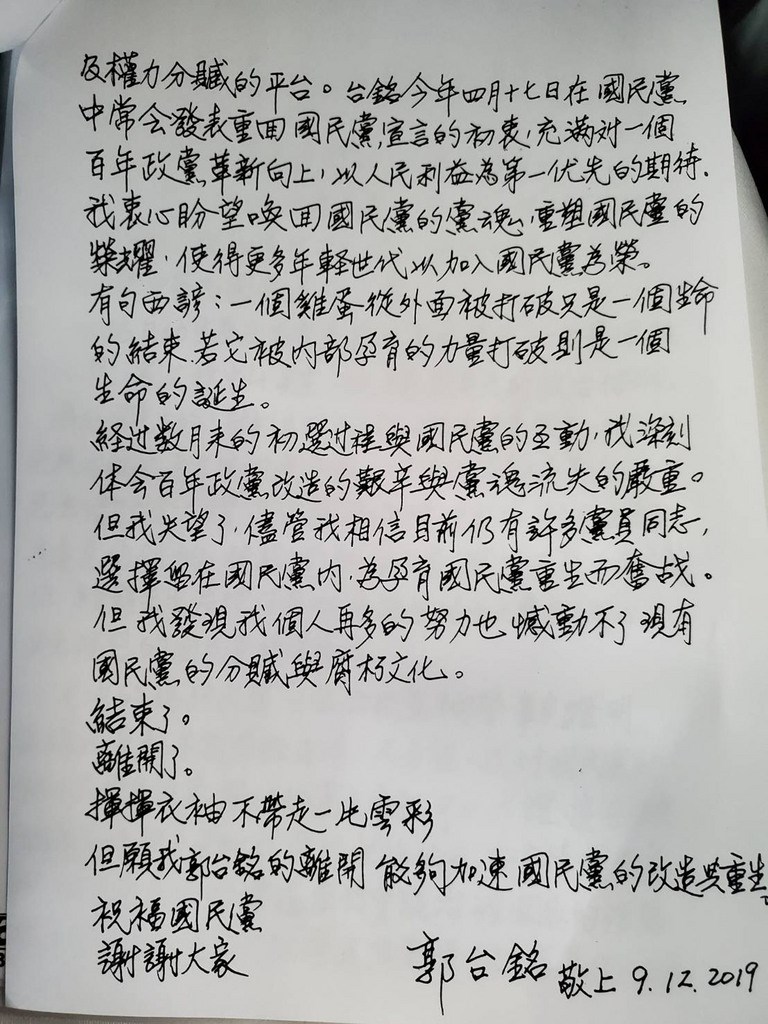 及權力分贓的平台。台銘今年四月十七日在國民黨
中常会發表重回國民黨宣言的初衷,充滿対一個
百年政黨革新向上,以人民利益為第一优先的期待.
我衷心盼望喚回國民黨的黨魂,重塑國民黨的
榮耀,使得更多年輕世代以加入國民黨為榮。
有句西諺:一個雞蛋從外面被打破只是一個生命
的結束.若它被內部孕育的力量打破則是一個
生命的誕生。
経过数月来的初選过程與國民黨的互動,我深刻
体会百年政黨改造的艱辛與黨魂流失的嚴重。
但我失望了,儘管我相信目前仍有許多黨員同志,
選擇留在國民黨內,為孕育國民黨重生而奮战。
但我發現我個人再多的努力也憾動不了現有
國民黨的分贓與腐朽文化。
結束了。
離開了。
揮揮衣袖不帶走一片雲彩
但願我郭台銘的離開 能夠加速國民黨的改造與重生。
祝福國民黨
謝謝大家
郭台銘 敬上 9.12.2019